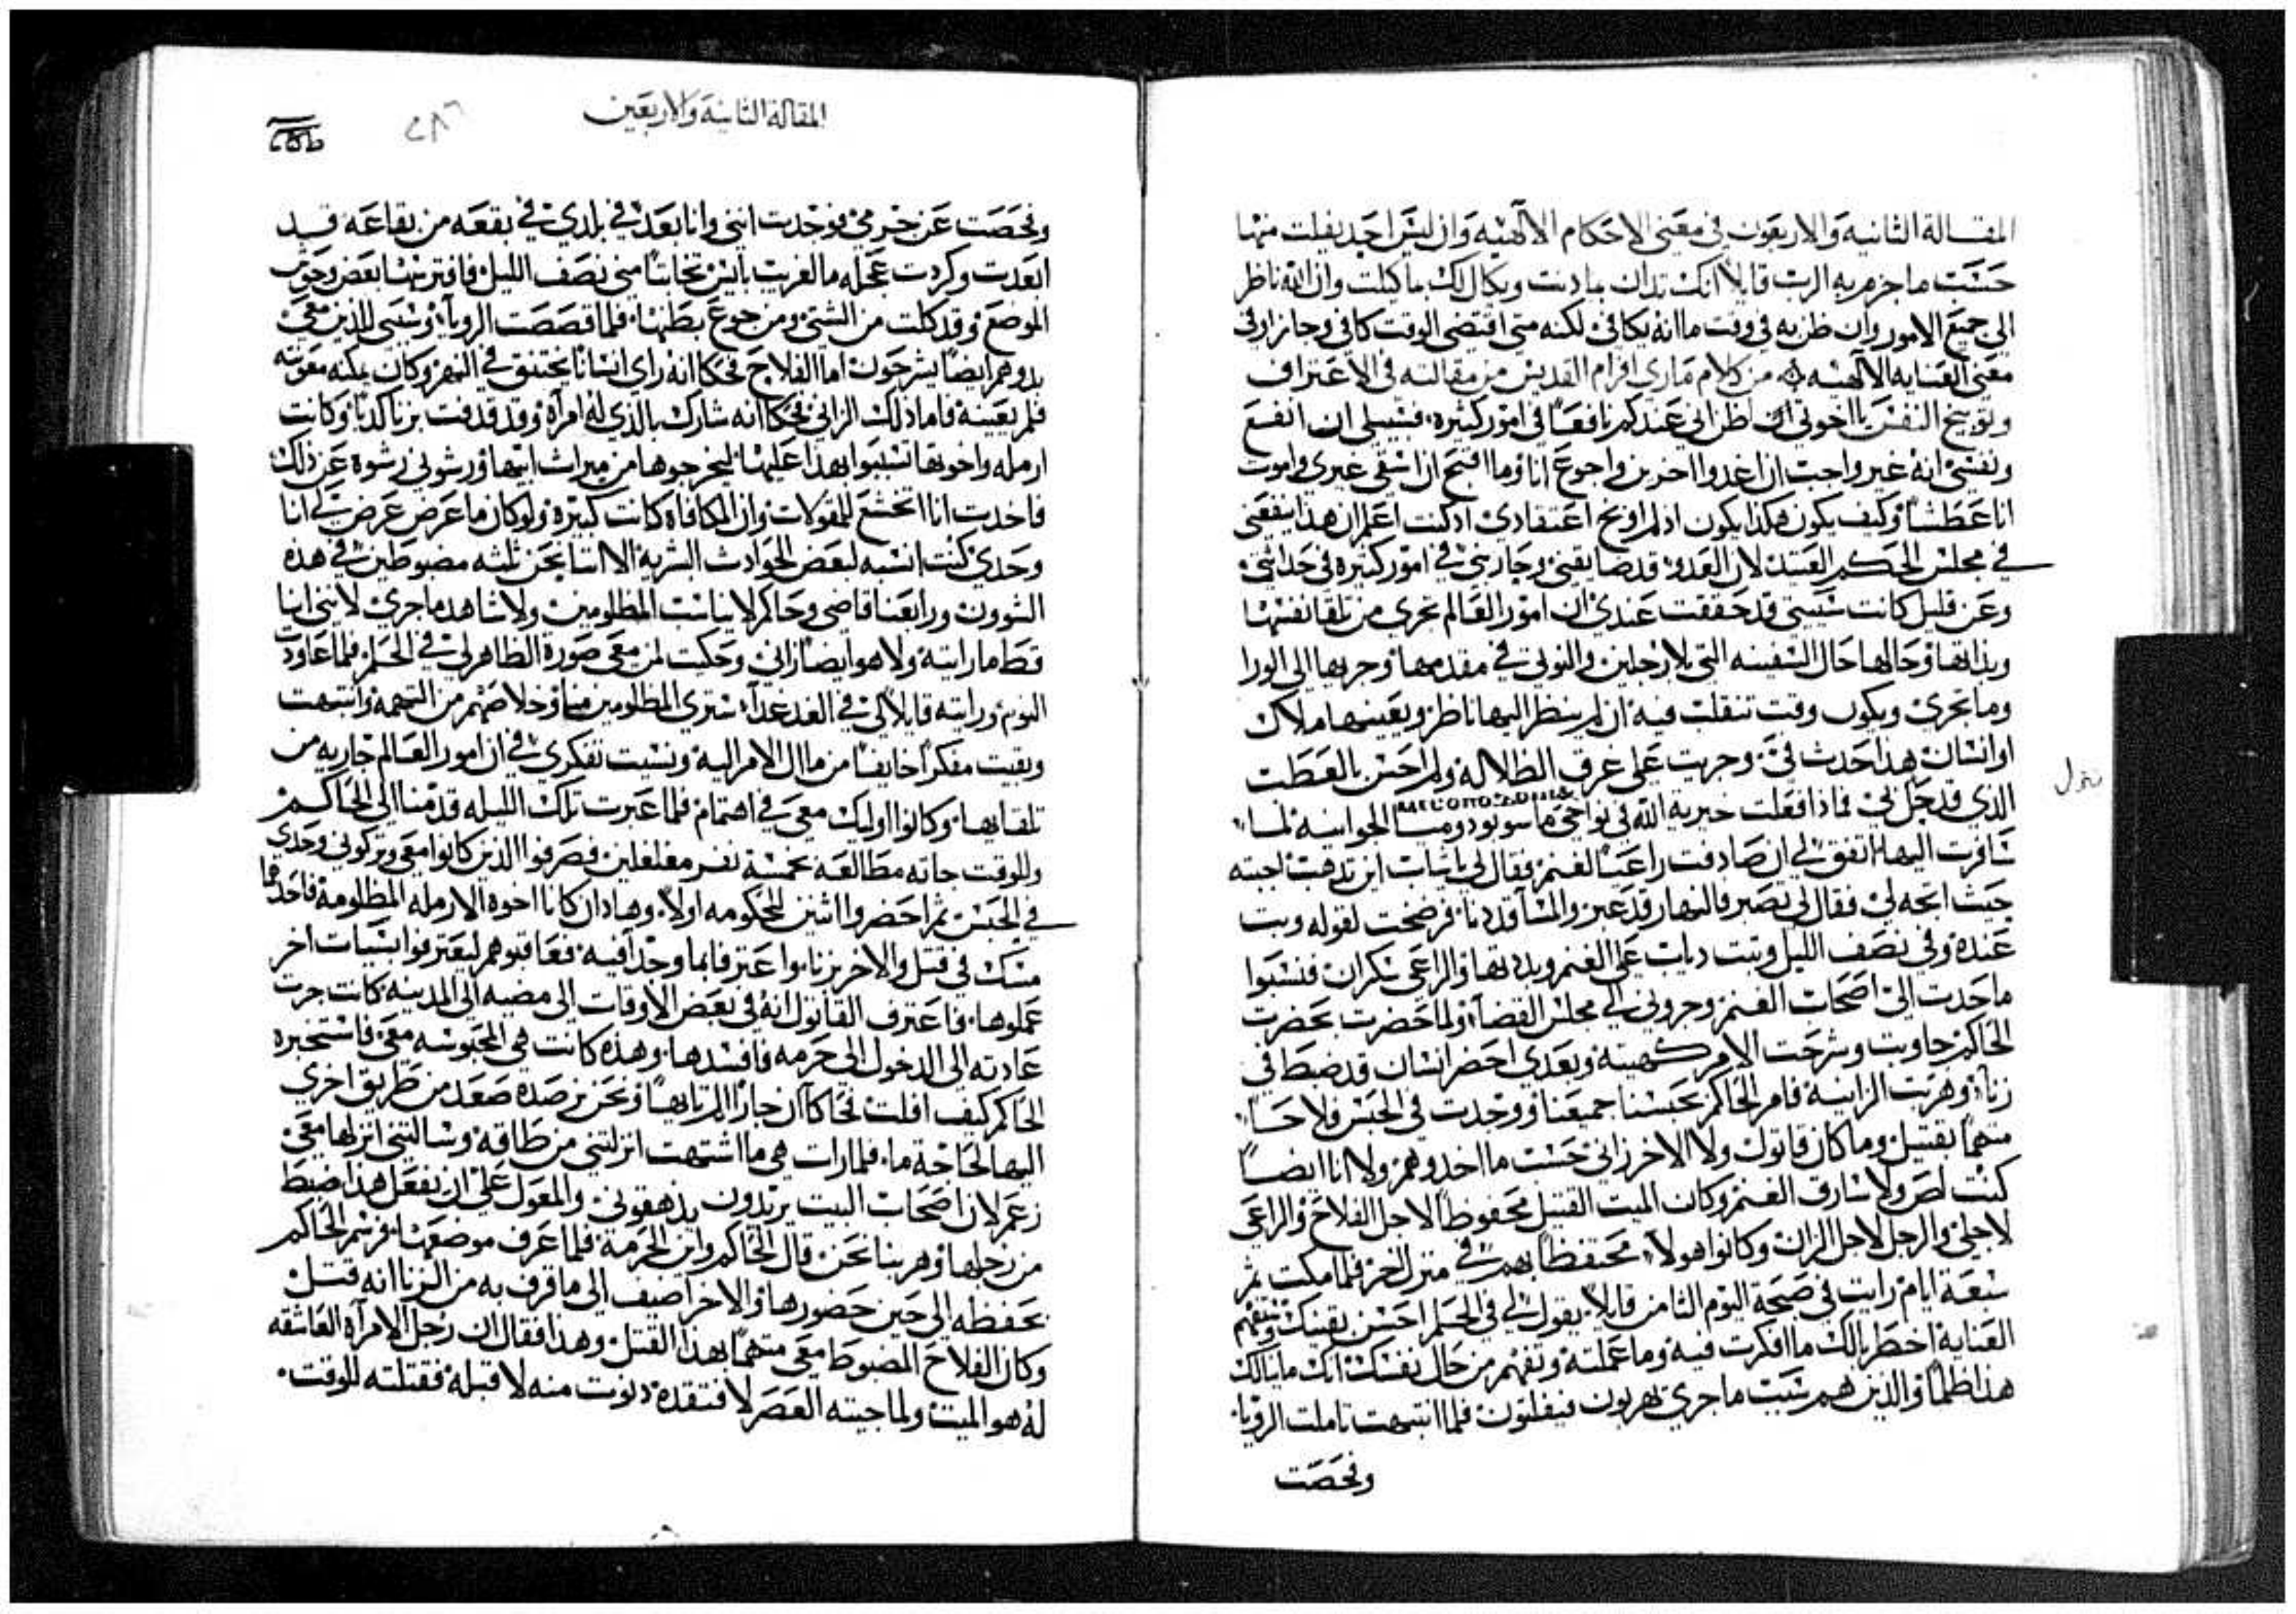 المقالة الثانية والاربعون في معنى الاحكام الالهيه وان ليس احد يفلت منها
حسب ما جزم به الرب قايلاً انك تدان بما دنت ويكال لك بما كيلت وان الله ناظر
الى جميع الامور وان ظن به في وقت ما انه يكافئ لكنه متى اقتضى الوقت كافى وجازا وفي
معنى العنايه الالهيه من كلام ماري افرام القديس من مقالته في الاعتراف
وتوبيخ النفس يا اخوتي ان اظن اني عندكم نافعاً في امور كثيره فسبيلى ان انفع
ونفسي انه غير واجب ان اغدوا اخرين واجوع انا وما اقبح ان اسقى غيري واموت
انا عطشاً وكيف يكون هكذا يكون اذ لم اوبخ اعتقادي اذ كنت اعلم ان هذا ينفعني
في مجلس الحكم العتيد لان العدو قد ضايقني وجاربني في امور كثيره في حداثتي
وعن قليل كانت شبيبتي قد حققت عندي ان امور العالم تجري من تلقا نفسها
وبذاتها وحالها حال السفينه التي بلا رجلين والنوتي في مقدمها وجريها الى الورا
وما تجري ويكون وقت تنقلب فيه ان لم ينظر اليها ناظر ويعينها ملاك
او انسان هذا حدث في وجريت على غرف الظلاله ولم احس بالعطت
الذي قد حل بي فماذا فعلت خيرية الله في نواحي ماسوبودوميا الجوانيه لما
سافرت اليها اتفق لي ان صادفت راعياً لغنم فقال لي يا شاب اين تدهب اجبته
حيث اتجه لي فقال لي تصبر فالنهار قد عبر والمسآ قد دنا فرضخت لقوله وبت
عنده وفي نصف الليل وثبت دياب على الغنم وبددتها والراعي سكران فنسبوا
ما حدت الي اصحاب الغنم وجروني الى مجلس القضآ ولما حضرت بحضرت
الحاكم جاوبت وشرحت الامر كهيته وبعدي احضر انسان قد ضبط في
زنا وهربت الزانيه فامر الحاكم بحبسنا جميعنا ووجدت في الحبس فلاحاً
متهماً بقتيل وما كان قاتول ولا الاخر زاني حسب ما اخدوهم ولا انا ايضاً
كنت لص ولا سارق الغنم وكان الميت القتيل محفوظاً لاجل الفلاح والراعي
لاجلي والرجل لاجل الزان وكانوا هولآ محتفظاً بهم في منزل اخر فلما مكت ثم
سبعة ايام رايت في صبحة اليوم الثامن قايلاً يقول لي في الحلم احسن يقينك وتفهم
العنايه اخطر بالك ما افكرت فيه وما عملته وتفهم من حال نفسك انك ما ينالك
هذا ظلماً والذين هم سبب ما جري يهربون فيفلتون فلما انتبهت تاملت الرويا
وفحصت
المقالة الثانية والاربعين
٢٨٦
وفحصت عن جرمي فوجدت انني وانا بعد في بلدي في بقعه من بقاعه قد
ابعدت وكردت عجله ما لغريب بايس تخابثاً مني نصف الليل فافترسها بعض وحوش
الموضع وقد كلت من الشتي ومن جوع بطنها فلما قصصت الرويا وسببي للذين معي
بدوهم ايضاً يشرحون اما الفلاح فحكا انه راى انساناً يختنق في النهر وكان يمكنه معونته
فلم يعينه فاما ذلك الزاني فحكا انه شارك بالذي له امرآه وقد قدفت بزنا كدباً وكانت
ارمله واخوتها تسببوا بهذا عليها ليخرجوها من ميراث ابيها ورشوني رشوة عن ذلك
فاخدت انا اتخشع للمقولات وان المكافاه كانت كبيره ولو كان ما عرض عرض لي انا
وحدي كنت انسبه لبعض الحوادث البشريه الا اننا نحن ثلثه مضبوطين في هذه
الشوون ورابعنا قاضي وحاكم لا يناسب المظلومين ولا شاهد ما جري لانني انا
قط ما رايته ولا هو ايضاً راني وحكيت لمن معي صورة الظاهر لي في الحلم فلما عاودت
النوم ورايته قايلاً لي في الغد غداً سترى المظلومين منهم وخلاصهم من التهمه وانتبهت
وبقيت مفكراً خايفاً من مآل الامر اليه ونسيت تفكري في ان امور العالم جاريه من
تلقايها وكانوا اوليك معي في اهتمام فلما عبرت تلك الليله قدمنا الى الحاكم
وللوقت جاته مطالعه بخمسة نفر مغلغلين فصرفوا الذين كانوا معي وتركوني وحدي
في الحبس ثم احضروا اثنين للحكومه اولاً وهادان كانا اخوة الارمله المظلومه فاحدهما
مسك في قتل والاخر بزنا واعترفا بما وجدا فيه فعاقبوهم ليعترفوا بسيات اخر
عملوها فاعترف القاتول انه في بعض الاوقات الى مضيه الى المدينه كانت جرت
عادته الى الدخول الى حرمه فافسدها وهذه كانت هي المحبوسه معي فاستخبره
الحاكم كيف افلت فحكا ان جاراً للزنا بها ونحن برصده صعد من طريق اخري
اليها لحاجة ما فلما رات هي ما اشتهت انزلتني من طاقه وسالتني انزلها معي
زعم لان اصحاب البيت يريدون يذهقوني والمعول علي ان نفعل هذا ضبط
من رجلها وهربنا نحن قال الحاكم واين الحرمه فلما عرف موضعها فرسم الحاكم
بحفظه الى حين حضورها والاخر اضيف الى ما قرف به من الزنا انه قتل
وكان الفلاح المضبوط معي متهماً بهذا القتل وهذا فقال ان رجل الامرآه العاشقه
له هو الميت ولما جيته العصر لافتقده دنوت منه لاقبله فقتلته للوقت